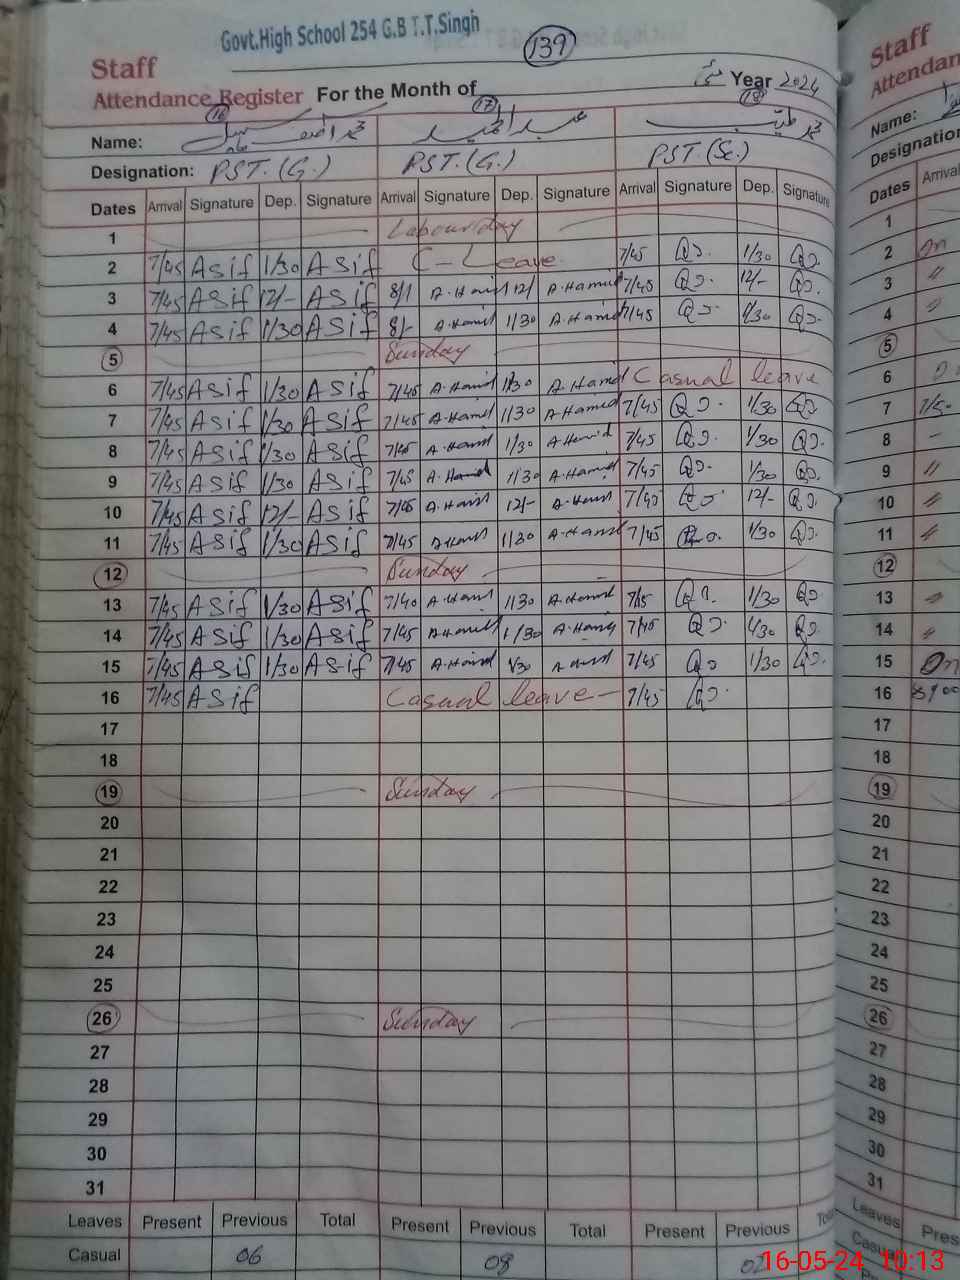 Govt.High School 254 G.B T.T.Singh
139
Staff
Attendance Register For the Month of مئی Year 2024
16 17 18
Name: محمد آصف عبدالحمید محمد طیب
Designation: PST.(G.) PST.(G.) PST(Sc.)
Dates Arrival Signature Dep. Signature Arrival Signature Dep. Signature Arrival Signature Dep. Signature
1 Labour day
2 7/45 Asif 1/30 Asif C-Leave 7/45 1/30
3 7/45 Asif 12/- Asif 8/1 A.Hamid 12/ A.Hamid 7/45 12/-
4 7/45 Asif 1/30 Asif 8/- A.Hamid 1/30 A.Hamid 7/45 1/30
5 Sunday
6 7/45 Asif 1/30 Asif 7/45 A.Hamid 1/30 A.Hamid Casual leave
7 7/45 Asif 1/30 Asif 7/45 A.Hamid 1/30 A.Hamid 7/45 1/30
8 7/45 Asif 1/30 Asif 7/45 A.Hamid 1/30 A.Hamid 7/45 1/30
9 7/45 Asif 1/30 Asif 7/45 A.Hamid 1/30 A.Hamid 7/45 1/30
10 7/45 Asif 12/- Asif 7/45 A.Hamid 12/- A.Hamid 7/45 12/-
11 7/45 Asif 1/30 Asif 7/45 A.Hamid 1/30 A.Hamid 7/45 1/30
12 Sunday
13 7/45 Asif 1/30 Asif 7/40 A.Hamid 1/30 A.Hamid 7/45 1/30
14 7/45 Asif 1/30 Asif 7/45 A.Hamid 1/30 A.Hamid 7/45 1/30
15 7/45 Asif 1/30 Asif 7/45 A.Hamid 1/30 A.Hamid 7/45 1/30
16 7/45 Asif Casual leave- 7/45
17
18
19 Sunday
20
21
22
23
24
25
26 Sunday
27
28
29
30
31
Leaves Present Previous Total Present Previous Total Present Previous
Casual 06 08
Staff
Name:
Designation
Dates Arrival
1
2
3
4
5
6
7
8
9
10
11
12
13
14
15
16
17
18
19
20
21
22
23
24
25
26
27
28
29
30
31
Leaves
16-05-24 10:13